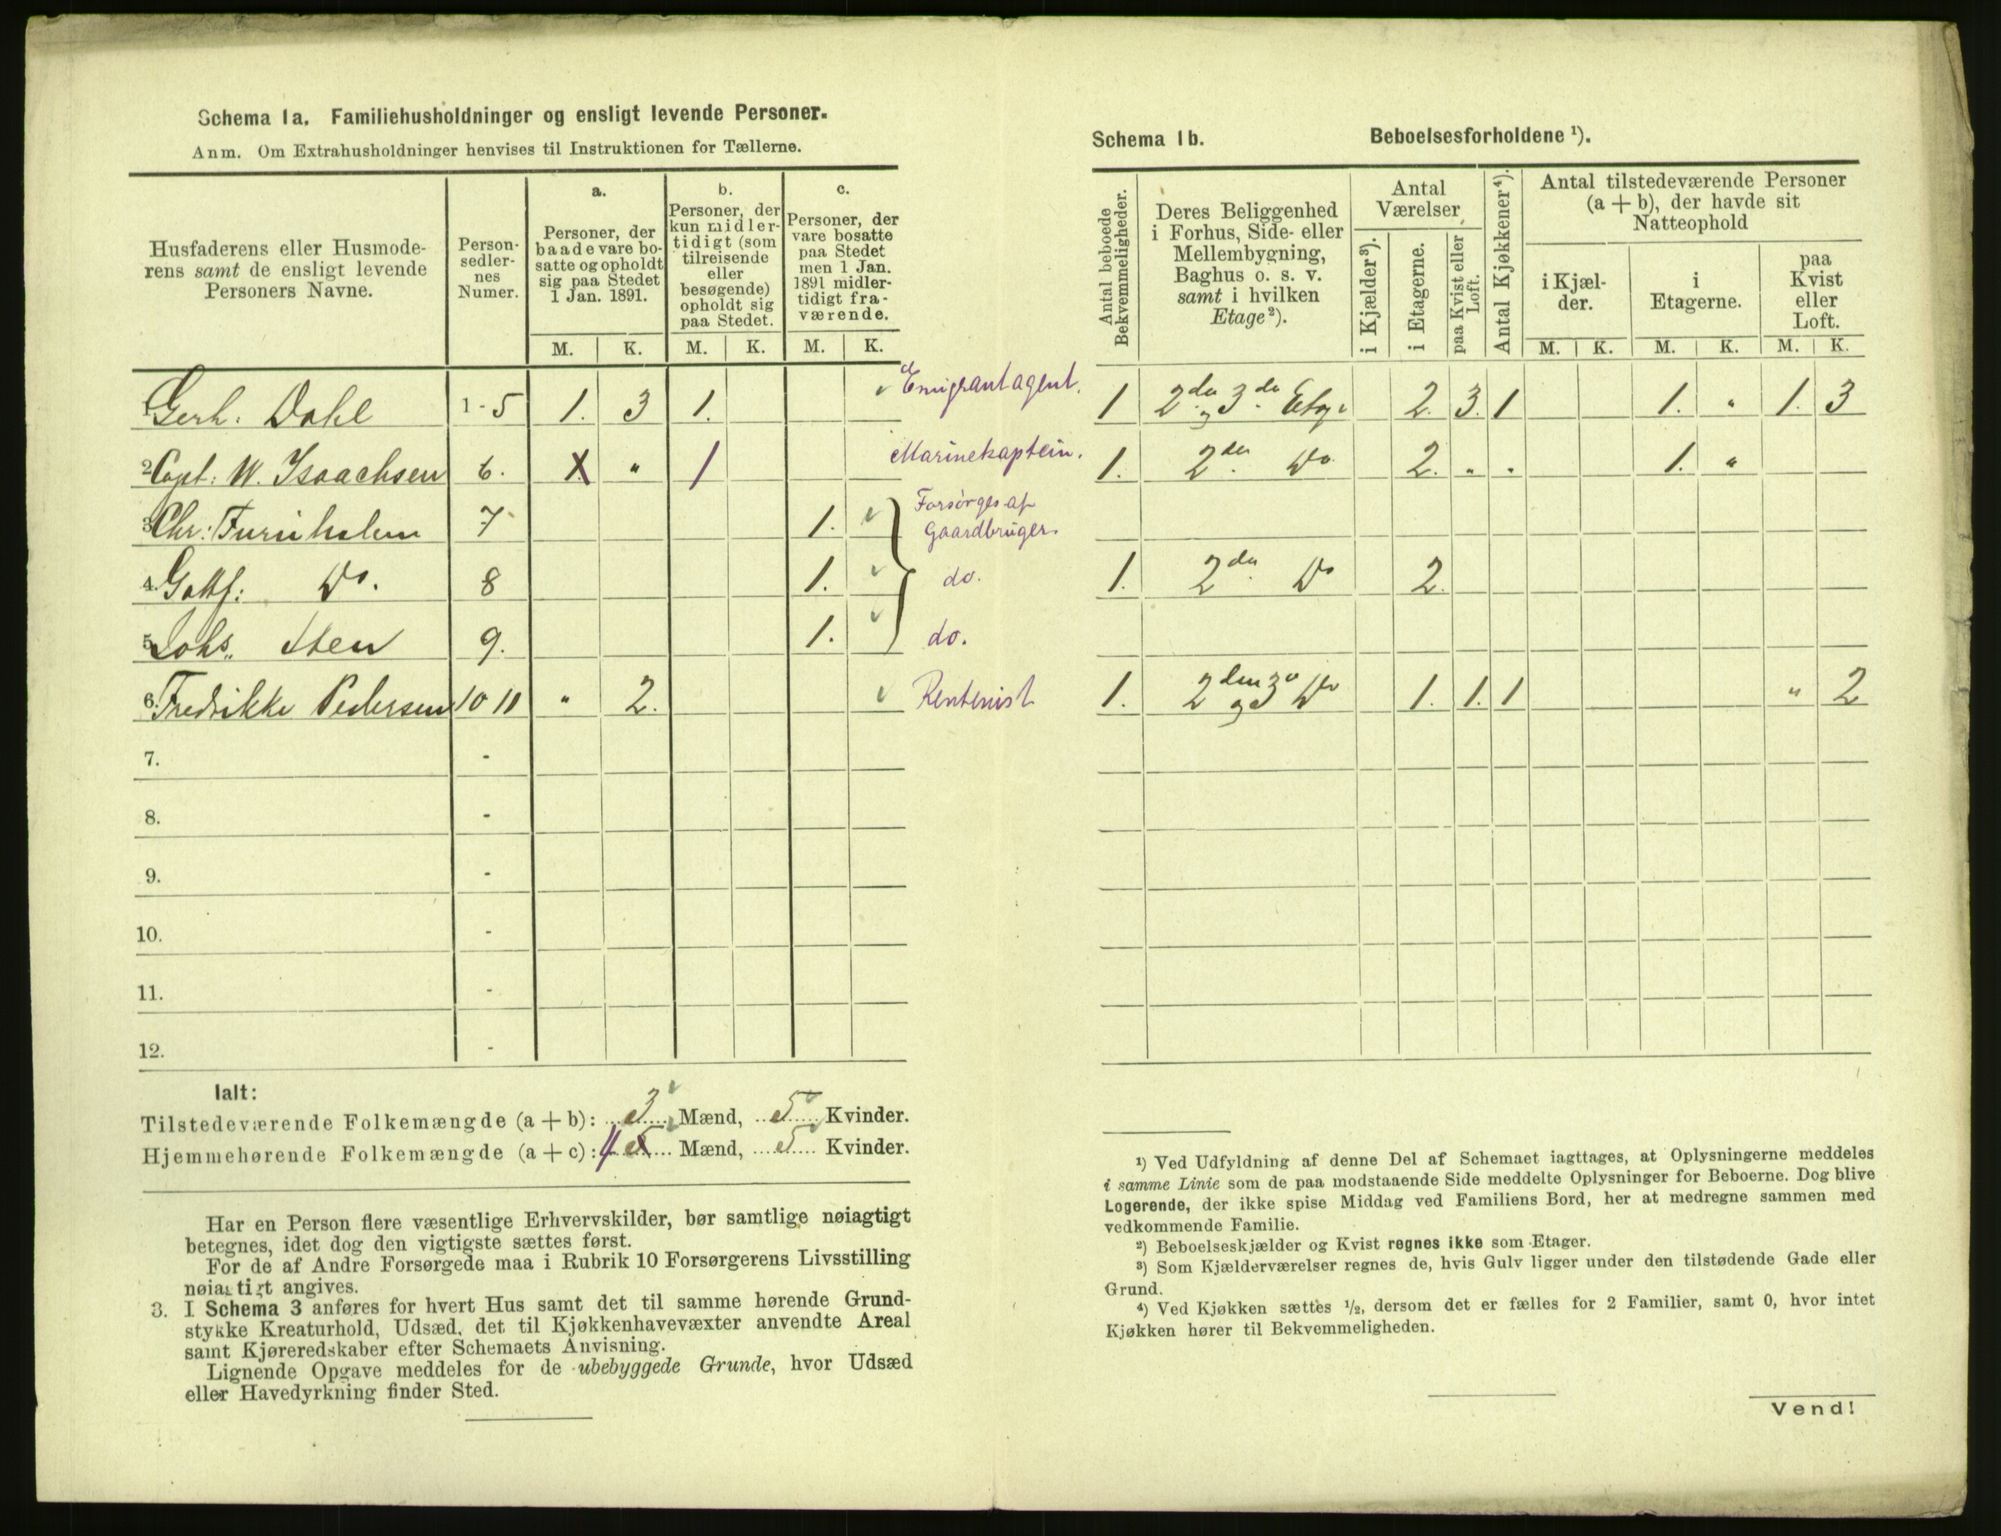 Schema 1a. Familiehusholdninger og ensligt levende Personer.
Anm. Om Extrahusholdninger henvises til Instruktionen for Tællerne.
Husfaderens eller Husmode-
rens samt de ensligt levende
Personers Navne.
Person-
sedler-
nes
Numer.
a.
Personer, der
baade vare bo-
satte og opholdt
sig paa Stedet
1 Jan. 1891.
b.
Personer, der
kun midler-
tidigt (som
tilreisende
eller
besøgende)
opholdt sig
paa Stedet.
c.
Personer, der
vare bosatte
paa Stedet
men 1 Jan.
1891 midler-
tidigt fra-
værende.
M. K. M. K. M. K.
1 Gerh. Dahl 1 - 5 1. 3 1. Emigrantagent.
2 Capt: W. Isaachsen 6. X " 1 Marinekaptein.
3 Chr: Furuholm 7 1. Forsørges af
Gaardbruger.
4. Gottf: Do. 8 1. do.
5 Johs. Sten 9. 1. do.
6. Fredrikke Pedersen 10 11 " 2. Rentenist
7. -
8. -
9. -
10. -
11. -
12. -
Ialt:
Tilstedeværende Folkemængde (a + b): 3 Mænd, 5 Kvinder.
Hjemmehørende Folkemængde (a + c): 4 5 Mænd, 5 Kvinder.
Har en Person flere væsentlige Erhvervskilder, bør samtlige nøiagtigt
betegnes, idet dog den vigtigste sættes først.
For de af Andre Forsørgede maa i Rubrik 10 Forsørgerens Livsstilling
nøiagtigt angives.
3. I Schema 3 anføres for hvert Hus samt det til samme hørende Grund-
stykke Kreaturhold, Udsæd, det til Kjøkkenhavevæxter anvendte Areal
samt Kjøreredskaber efter Schemaets Anvisning.
Lignende Opgave meddeles for de ubebyggede Grunde, hvor Udsæd
eller Havedyrkning finder Sted.
Schema 1b. Beboelsesforholdene ¹).
Antal beboede
Bekvemmeligheder.
Deres Beliggenhed
i Forhus, Side- eller
Mellembygning,
Baghus o. s. v.
samt i hvilken
Etage²).
Antal
Værelser
i Kjælder³).
i Etagerne.
paa Kvist eller
Loft.
Antal Kjøkkener⁴).
Antal tilstedeværende Personer
(a + b), der havde sit
Natteophold
i Kjæl-
der.
i
Etagerne.
paa
Kvist
eller
Loft.
M. K. M. K. M. K.
1 2den og 3de Etage 2. 3. 1 1. " 1. 3
1. 2den Do 2. " " 1. "
1. 2den Do 2.
1. 2den og 3e Do 1. 1. 1 " 2
¹) Ved Udfyldning af denne Del af Schemaet iagttages, at Oplysningerne meddeles
i samme Linie som de paa modstaaende Side meddelte Oplysninger for Beboerne. Dog blive
Logerende, der ikke spise Middag ved Familiens Bord, her at medregne sammen med
vedkommende Familie.
²) Beboelseskjælder og Kvist regnes ikke som Etager.
³) Som Kjælderværelser regnes de, hvis Gulv ligger under den tilstødende Gade eller
Grund.
⁴) Ved Kjøkken sættes ½, dersom det er fælles for 2 Familier, samt 0, hvor intet
Kjøkken hører til Bekvemmeligheden.
Vend!